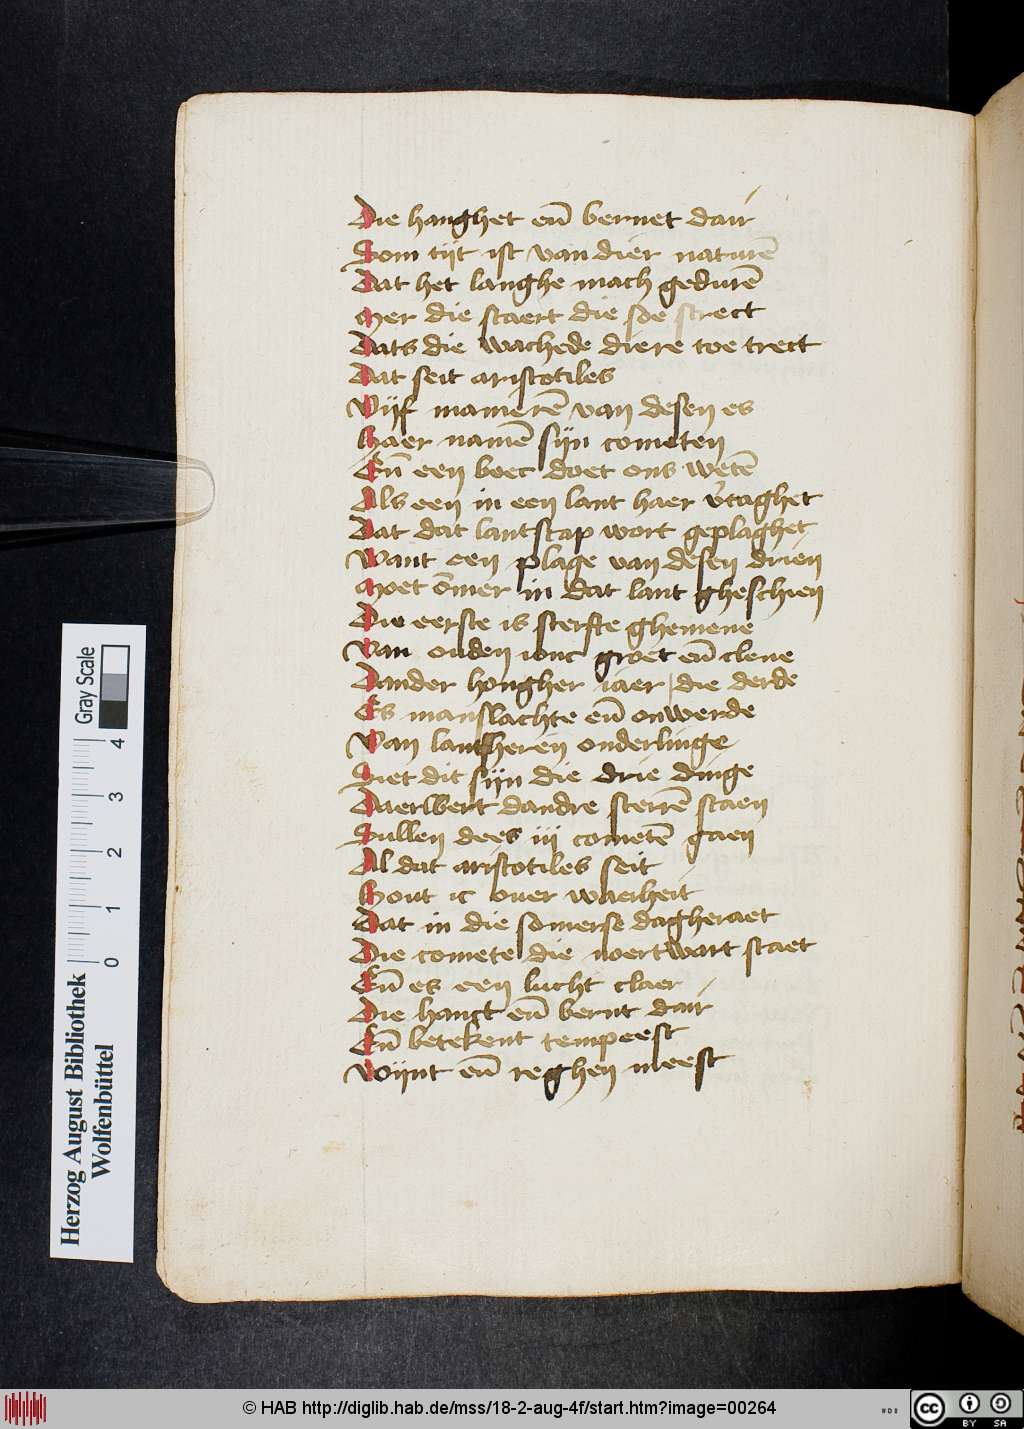 Die hanghet en̄ bernet dair
Som tijt ist van dier naturē
Dat het langhe mach gedurē
Mer die staert die soe strect
Dats die wachede diere toe trect
Dat seit aristotiles
Vijf manierē van desen es
Haer namē sijn cometen
En̄ een boec doet ons wetē
Als een in een lant haer v̓taghet
Dat dat lantscap wort geplaghet
Want een plage van desen drien
Moet ōmer in dat lant gheschien
Die eerste is sterfte ghemene
Van ouden ionc groet en̄ clene
Dander hongher iaer die derde
Es manslachte en̄ onwerde
Van lantsheren onderlinge
Siet dit sijn die drie dinge
Daerwert dandre sterrē staen
Sullen dees iij cometē gaen
Al dat aristotiles seit
Hout ic ouer waerheit
Dat in die somerse dagheraet
Die comete die noertwart staet
En̄ es een lucht claer
Die hanct en̄ bernt dair
En̄ betekent tempeest
Wijnt en̄ reghen meest
Herzog August Bibliothek
Wolfenbüttel
Gray Scale
0 1 2 3 4
© HAB http://diglib.hab.de/mss/18-2-aug-4f/start.htm?image=00264
cc BY SA